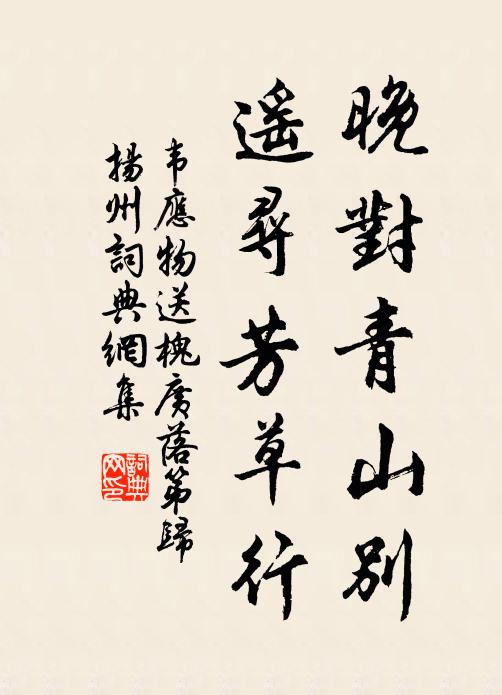 晚對青山別
遥尋芳草行
韦應物送槐廣落第歸
揚州詞典網集
詞典网印